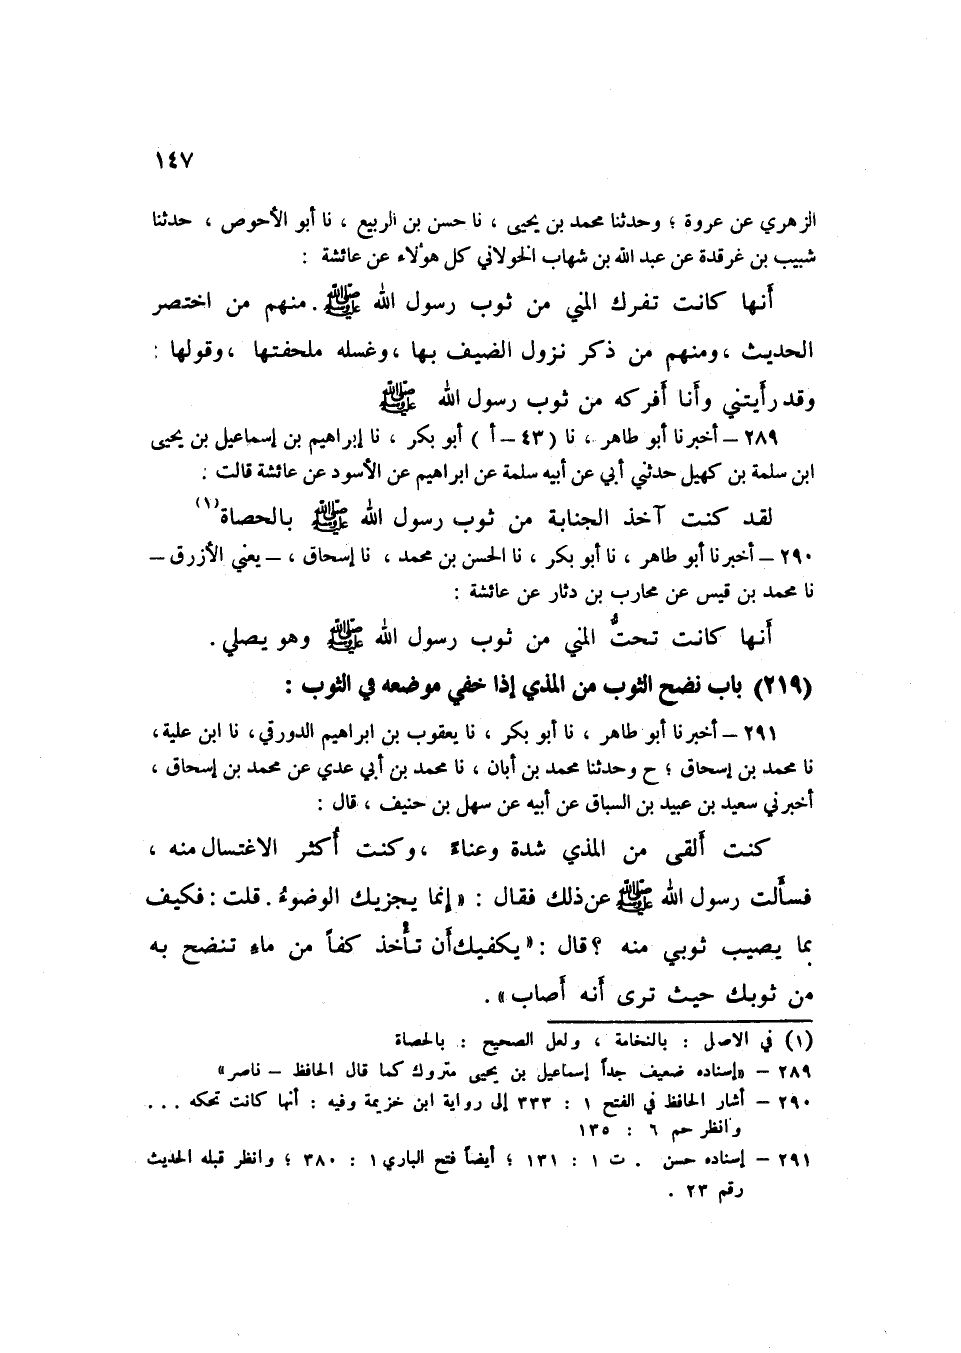 ١٤٧
الزهري عن عروة ؛ وحدثنا محمد بن يحيى ، نا حسن بن الربيع ، نا أبو الأحوص ، حدثنا
شبيب بن غرقدة عن عبد الله بن شهاب الخولاني كل هولاء عن عائشة :
أنها كانت تفرك المني من ثوب رسول الله ﷺ . منهم من اختصر
الحديث ، ومنهم من ذكر نزول الضيف بها ، وغسله ملحفتها ، وقولها :
وقد رأيتني وأنا أفركه من ثوب رسول الله ﷺ
٢٨٩ – أخبرنا أبو طاهر ، نا ( ٤٣ – أ ) أبو بكر ، نا إبراهيم بن إسماعيل بن يحيى
ابن سلمة بن كهيل حدثني أبي عن أبيه سلمة عن ابراهيم عن الأسود عن عائشة قالت :
لقد كنت آخذ الجنابة من ثوب رسول الله ﷺ بالحصاة(١)
٢٩٠ – أخبرنا أبو طاهر ، نا أبو بكر ، نا الحسن بن محمد ، نا إسحاق ، – يعني الأزرق –
نا محمد بن قيس عن محارب بن دثار عن عائشة :
أنها كانت تحتُّ المني من ثوب رسول الله ﷺ وهو يصلي .
(٢١٩) باب نضح الثوب من المذي إذا خفي موضعه في الثوب :
٢٩١ – أخبرنا أبو طاهر ، نا أبو بكر ، نا يعقوب بن ابراهيم الدورقي، نا ابن علية،
نا محمد بن إسحاق ؛ ح وحدثنا محمد بن أبان ، نا محمد بن أبي عدي عن محمد بن إسحاق ،
أخبرني سعيد بن عبيد بن السباق عن أبيه عن سهل بن حنيف ، قال :
كنت ألقى من المذي شدة وعناءً ، وكنت أُكثر الاغتسال منه ،
فسألت رسول الله ﷺ عن ذلك فقال : « إنما يجزيك الوضوءُ . قلت : فكيف
بما يصيب ثوبي منه ؟ قال : « يكفيك أن تأخذ كفاً من ماءٍ تنضح به
من ثوبك حيث ترى أنه أصاب » .
(١) في الاصل : بالنخامة ، ولعل الصحيح : بالحصاة
٢٨٩ – «إسناده ضعيف جداً إسماعيل بن يحيى متروك كما قال الحافظ – ناصر»
٢٩٠ – أشار الحافظ في الفتح ١ : ٣٣٣ إلى رواية ابن خزيمة وفيه : أنها كانت تحكه . . .
وانظر حم ٦ : ١٣٥
٢٩١ – إسناده حسن . ت ١ : ١٣١ ؛ أيضاً فتح الباري ١ : ٣٨٠ ؛ وانظر قبله الحديث
رقم ٢٣ .